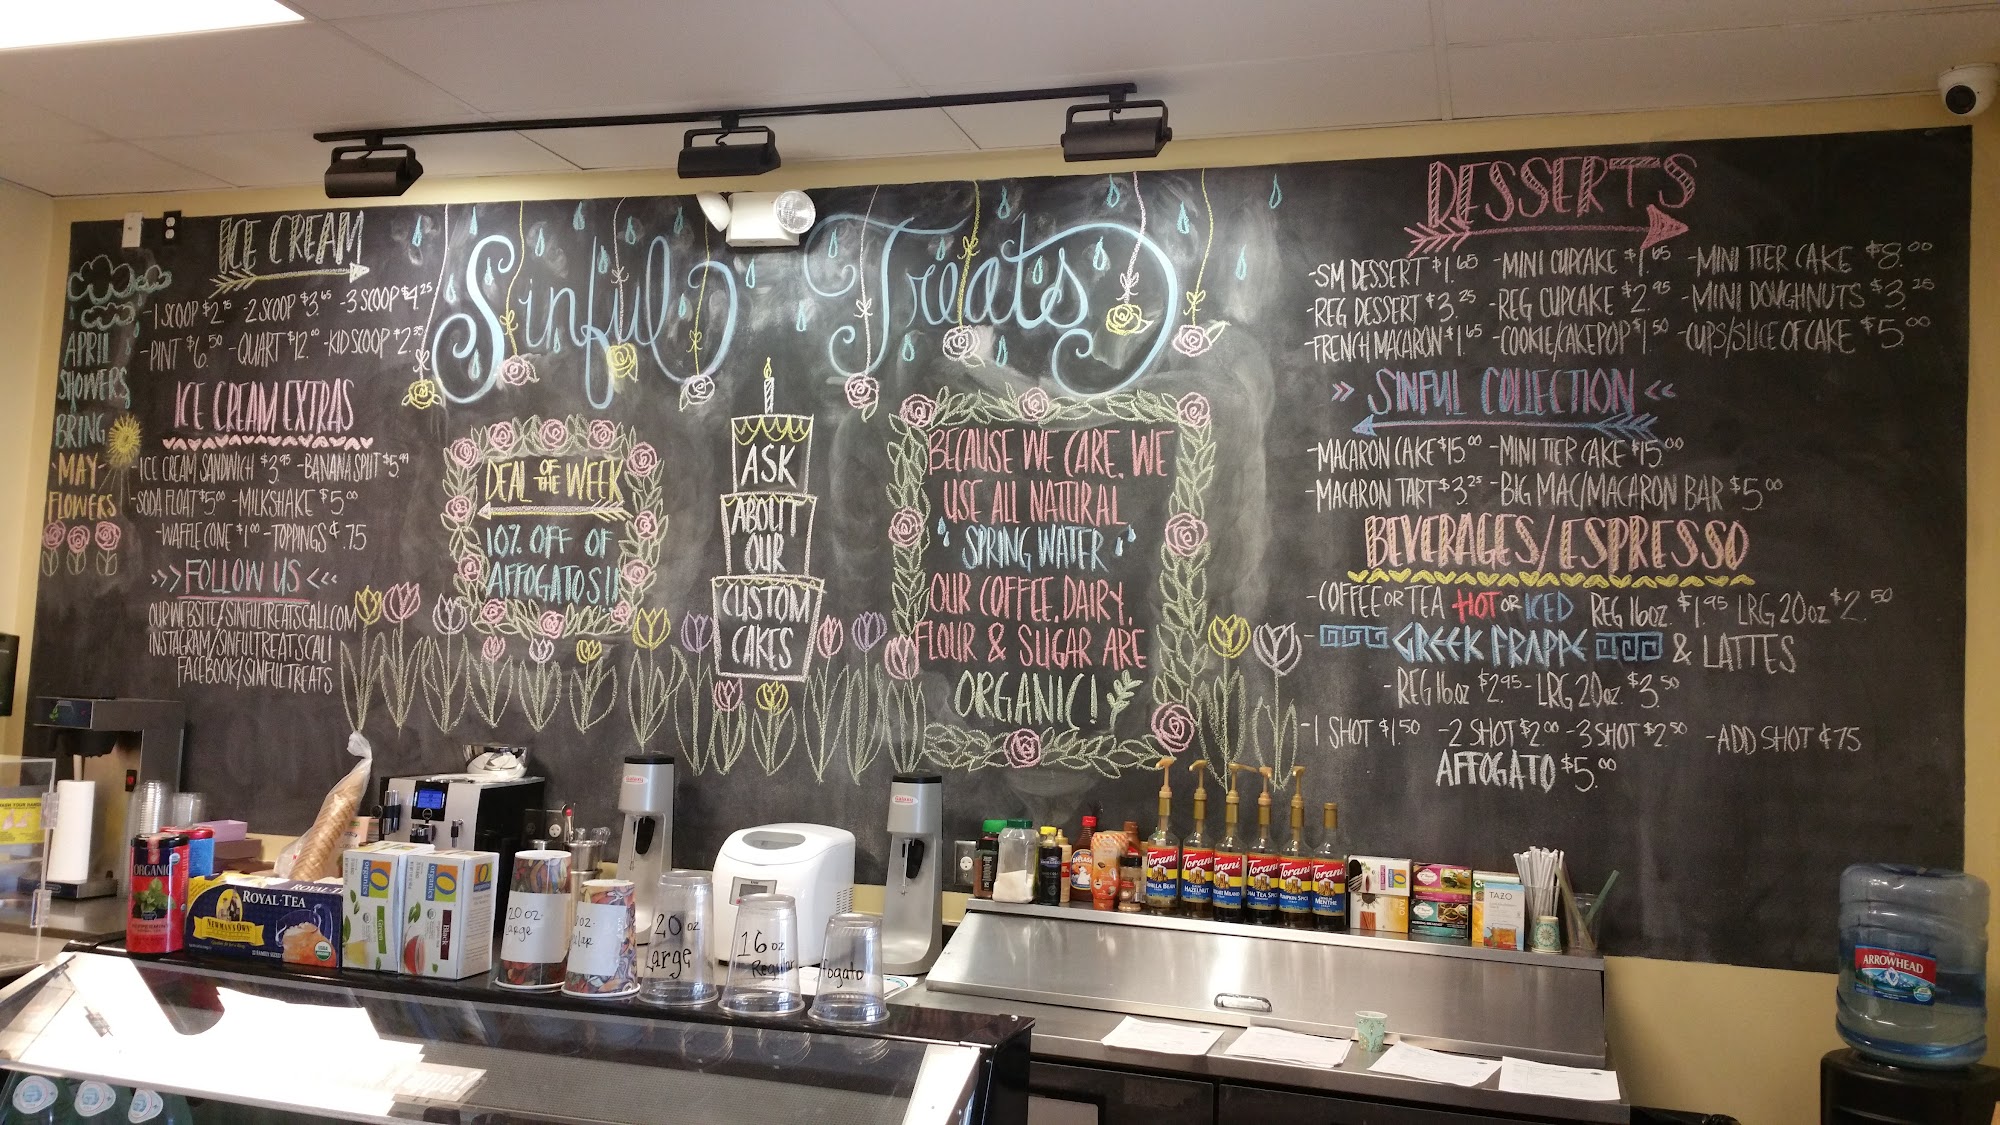 APRIL
SHOWERS
BRING
-MAY-
FLOWERS
ICE CREAM
-1 SCOOP $2.75 -2 SCOOP $3.65 -3 SCOOP $4.25
-PINT $6.50 -QUART $12.00 -KID SCOOP $2.25
ICE CREAM EXTRAS
-ICE CREAM SANDWICH $3.95 -BANANA SPLIT $5.99
-SODA FLOAT $5.00 -MILKSHAKE $5.00
-WAFFLE CONE $1.00 -TOPPINGS ¢.75
>>> FOLLOW US <<<
OUR WEBSITE/SINFULTREATSCALI.COM
INSTAGRAM/SINFULTREATSCALI
FACEBOOK/SINFULTREATS
Sinful Treats
DEAL OF THE WEEK
10% OFF OF
AFFOGATOS!!
ASK
ABOUT
OUR
CUSTOM
CAKES
BECAUSE WE CARE, WE
USE ALL NATURAL
SPRING WATER
OUR COFFEE, DAIRY,
FLOUR & SUGAR ARE
ORGANIC!
DESSERTS
-SM DESSERT $1.65 -MINI CUPCAKE $1.65 -MINI TIER CAKE $8.00
-REG DESSERT $3.25 -REG CUPCAKE $2.95 -MINI DOUGHNUTS $3.25
-FRENCH MACARON $1.65 -COOKIE/CAKEPOP $1.50 -CUPS/SLICE OF CAKE $5.00
>> SINFUL COLLECTION <<
-MACARON CAKE $15.00 -MINI TIER CAKE $15.00
-MACARON TART $3.25 -BIG MAC/MACARON BAR $5.00
BEVERAGES/ESPRESSO
-COFFEE OR TEA HOT OR ICED REG 16oz. $1.95 LRG 20oz $2.50
- GREEK FRAPPE & LATTES
-REG 16oz $2.95 -LRG 20oz. $3.50
-1 SHOT $1.50 -2 SHOT $2.00 -3 SHOT $2.50 -ADD SHOT ¢75
AFFOGATO $5.00
ORGANIC
ROYAL TEA
NEWMAN'S OWN
Organics
Green
Organics
Black
20 oz.
Large
20 oz
Large
16 oz
Regular
fogato
Torani
Torani
Torani
Torani
Torani
Torani
TAZO
ARROWHEAD